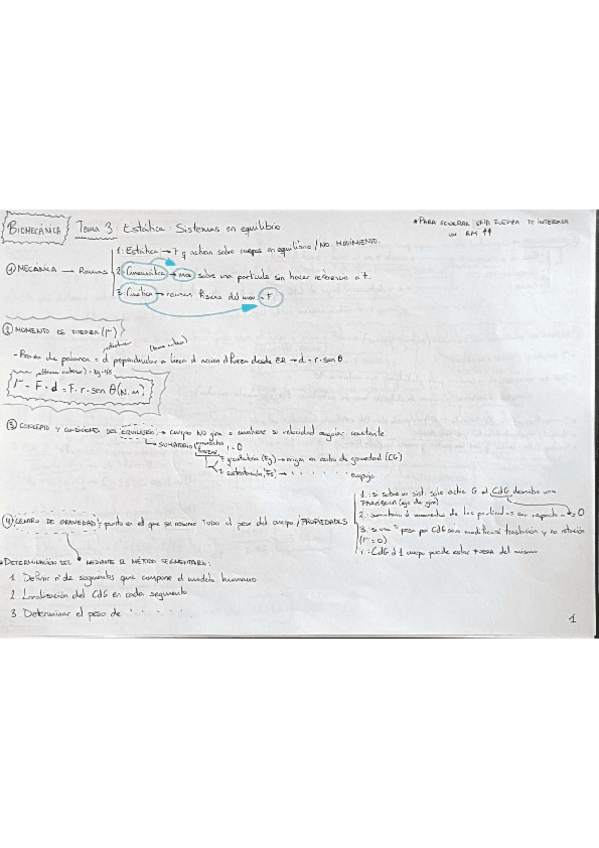 BIOMECÁNICA Tema 3: Estática: Sistemas en equilibrio
*PARA GENERAR UNA FUERZA TE INTERESA
un RM ↑↑
① MECÁNICA → Ramas
1. Estática → F q actúan sobre cuerpos en equilibrio / NO MOVIMIENTO.
2. Cinemática → mov sobre una partícula sin hacer referencia a F.
3. Cinética → causas físicas del mov → F
② MOMENTO DE FUERZA (Γ)
- Brazo de palanca = d perpendicular a línea d acción d fuerza desde ER → d = r · sen θ
Γ = F · d = F · r · sen θ (N.m)
③ CONCEPTO Y CONDICIONES DEL EQUILIBRIO → cuerpo NO gira = mantiene su velocidad angular constante
SUMATORIO momentos fuerzas = 0
F gravitatoria (Fg) → origen en centro de gravedad (CG)
F sustentación (Fs) → " " " " empuje
④ CENTRO DE GRAVEDAD: punto en el que se resume TODO el peso del cuerpo / PROPIEDADES
1. si sobre un sist. sólo actúa G el CdG describe una
PARÁBOLA (eje de giro)
2. sumatorio d momentos de las partículas con respecto a = 0
3. si una F pasa por CdG sólo modifica su traslación y no rotación
(Γ = 0)
4. CdG d 1 cuerpo puede estar fuera del mismo
*DETERMINACIÓN DEL MEDIANTE EL MÉTODO SEGMENTARIO:
1 Definir nº de segmentos que compone el modelo humano
2 Localización del CdG en cada segmento
3 Determinar el peso de " " " "
1